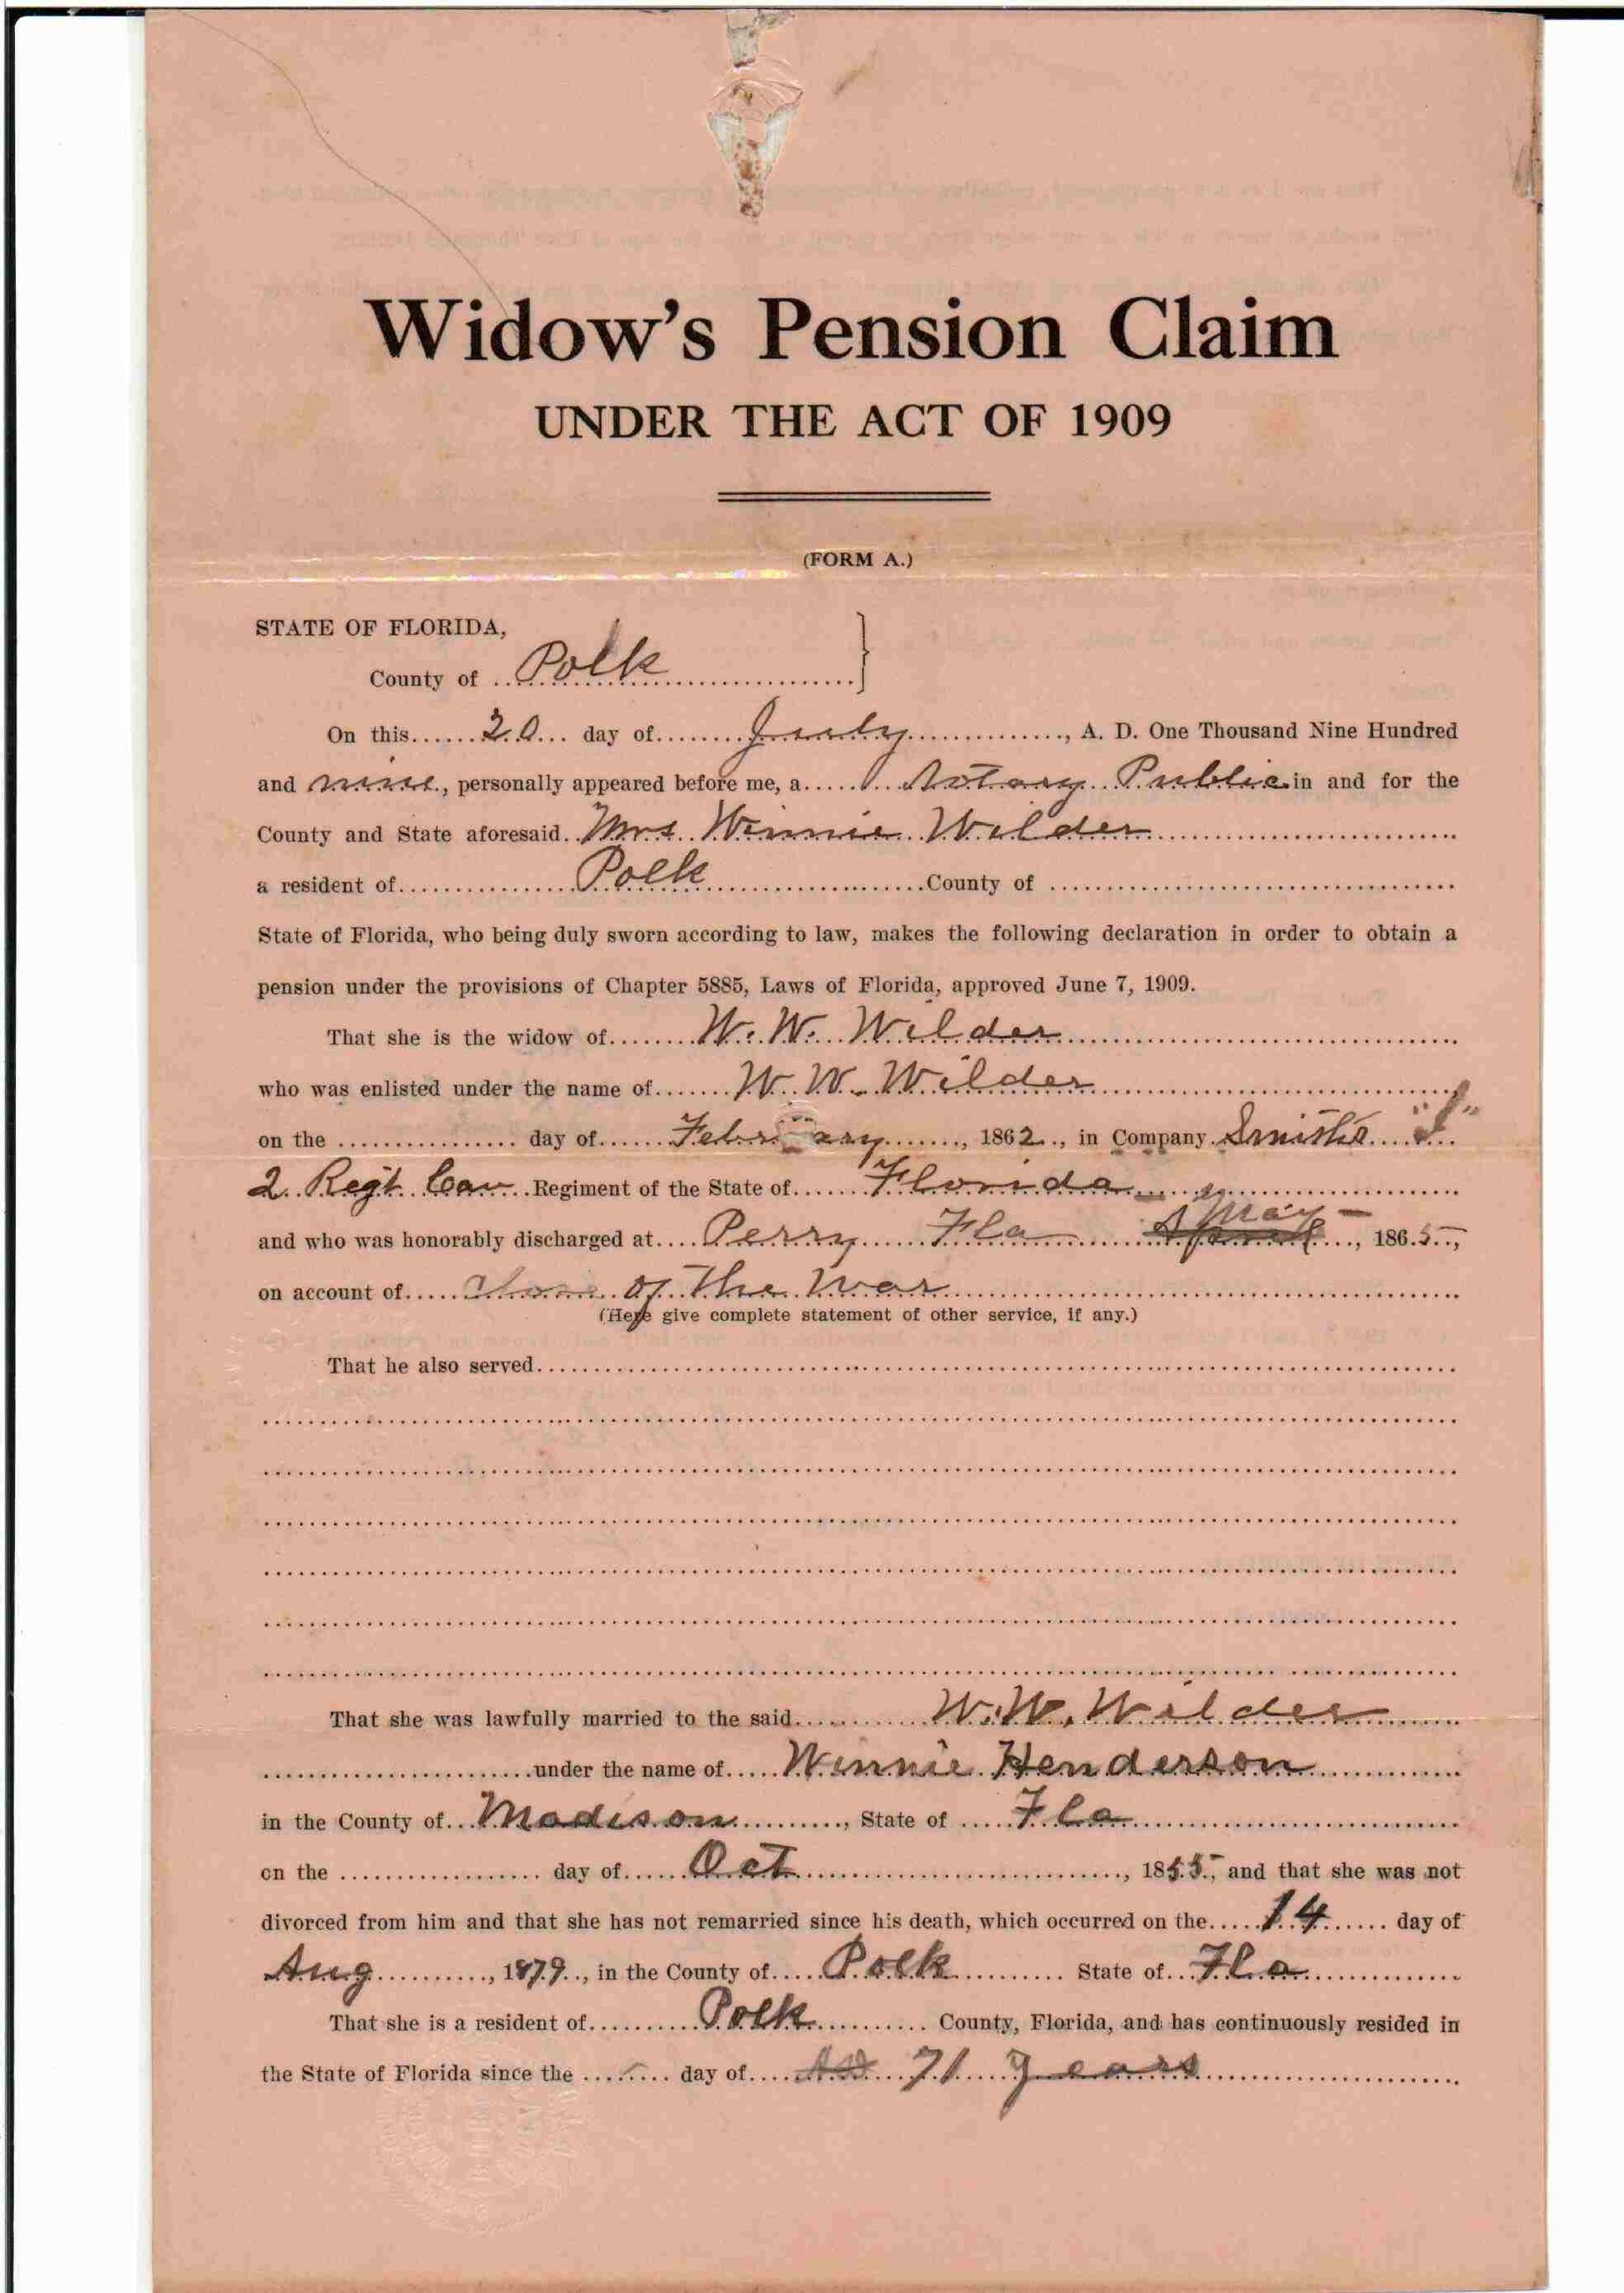 Widow's Pension Claim
UNDER THE ACT OF 1909
(FORM A.)
STATE OF FLORIDA,
County of Polk
On this 20 day of July, A. D. One Thousand Nine Hundred
and nine, personally appeared before me, a Notary Public in and for the
County and State aforesaid Mrs Winnie Wilder
a resident of Polk County of
State of Florida, who being duly sworn according to law, makes the following declaration in order to obtain a
pension under the provisions of Chapter 5885, Laws of Florida, approved June 7, 1909.
That she is the widow of W. W. Wilder
who was enlisted under the name of W. W. Wilder
on the day of February, 1862, in Company Smiths
2 Regt Cav Regiment of the State of Florida
and who was honorably discharged at Perry Fla April May, 1865,
on account of close of the war
(Here give complete statement of other service, if any.)
That he also served
That she was lawfully married to the said W. W. Wilder
under the name of Winnie Henderson
in the County of Madison, State of Fla
on the day of Oct, 1855, and that she was not
divorced from him and that she has not remarried since his death, which occurred on the 14 day of
Aug, 1879, in the County of Polk State of Fla
That she is a resident of Polk County, Florida, and has continuously resided in
the State of Florida since the day of 71 years